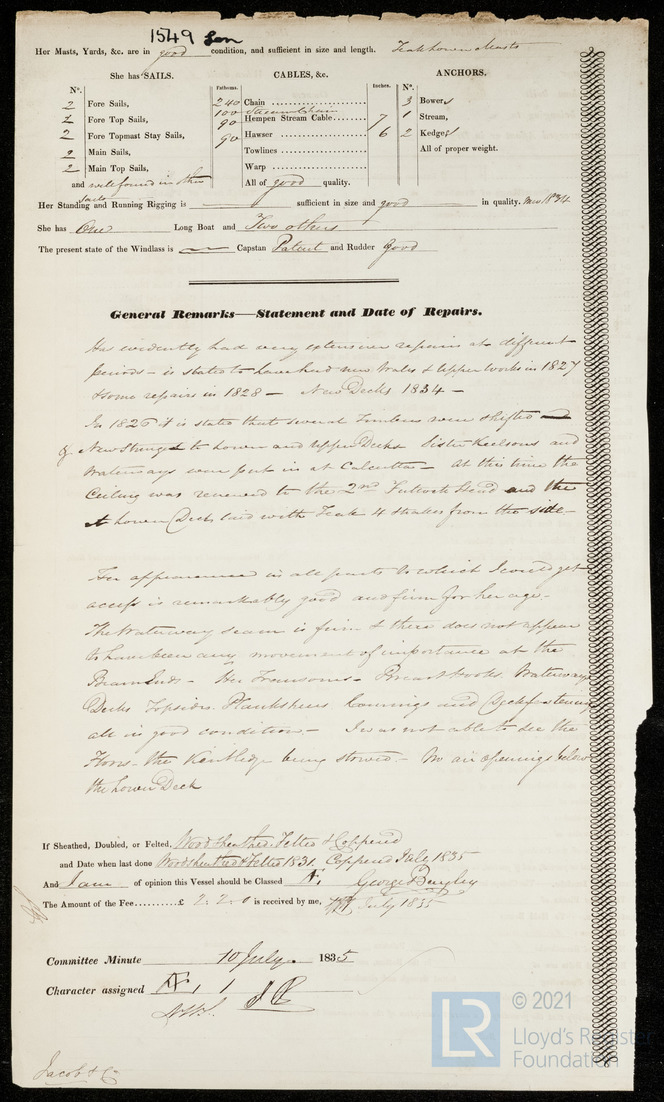 1549 Lon
Her Masts, Yards, &c. are in good condition, and sufficient in size and length. Teak lower Masts
She has SAILS.
CABLES, &c.
ANCHORS.
Nº.
Fathoms.
Inches.
Nº.
2 Fore Sails,
2 Fore Top Sails,
2 Fore Topmast Stay Sails,
2 Main Sails,
2 Main Top Sails,
and well found in other Sails
240 Chain
100 Stream Chain
90 Hempen Stream Cable 7
90 Hawser 6
Towlines
Warp
All of good quality.
3 Bowers
1 Stream,
2 Kedges
All of proper weight.
Her Standing and Running Rigging is sufficient in size and good in quality. New 1834
She has One Long Boat and Two others
The present state of the Windlass is Capstan Patent and Rudder Good
General Remarks—Statement and Date of Repairs.
Has evidently had very extensive repairs at different
periods - is stated to have had new Wales & Upper works in 1827
& some repairs in 1828 - New Decks 1834 -
In 1826 it is stated that several Timbers were shifted
New Strings to lower and Upper Decks Sister Keelsons and
Waterways were put in at Calcutta - At this time the
Ceiling was renewed to the 2nd Futtock Head and the
Lower Deck laid with Teak 4 strakes from the side -
Her appearance in all parts to which I could get
access is remarkably good and firm for her age -
The Waterway seam is firm & there does not appear
to have been any movement of importance at the
Beam Ends - Her Transoms - Breasthooks, Waterways
Decks Topsides Plankshears Comings and Deck fastening
all in good condition - I was not able to see the
Floors - the Kentledge being stowed - No air openings below
the Lower Deck
If Sheathed, Doubled, or Felted, Woodsheathed Felted & Coppered
and Date when last done Woodsheathed & Felted 1831. Coppered July 1835
And I am of opinion this Vessel should be Classed Æ
George Bayley
The Amount of the Fee..........£ 2: 2: 0 is received by me, July 1835
Committee Minute 10 July. 1835
Character assigned Æ, 1
Jacob & Co
LR
© 2021
Lloyd's Register
Foundation